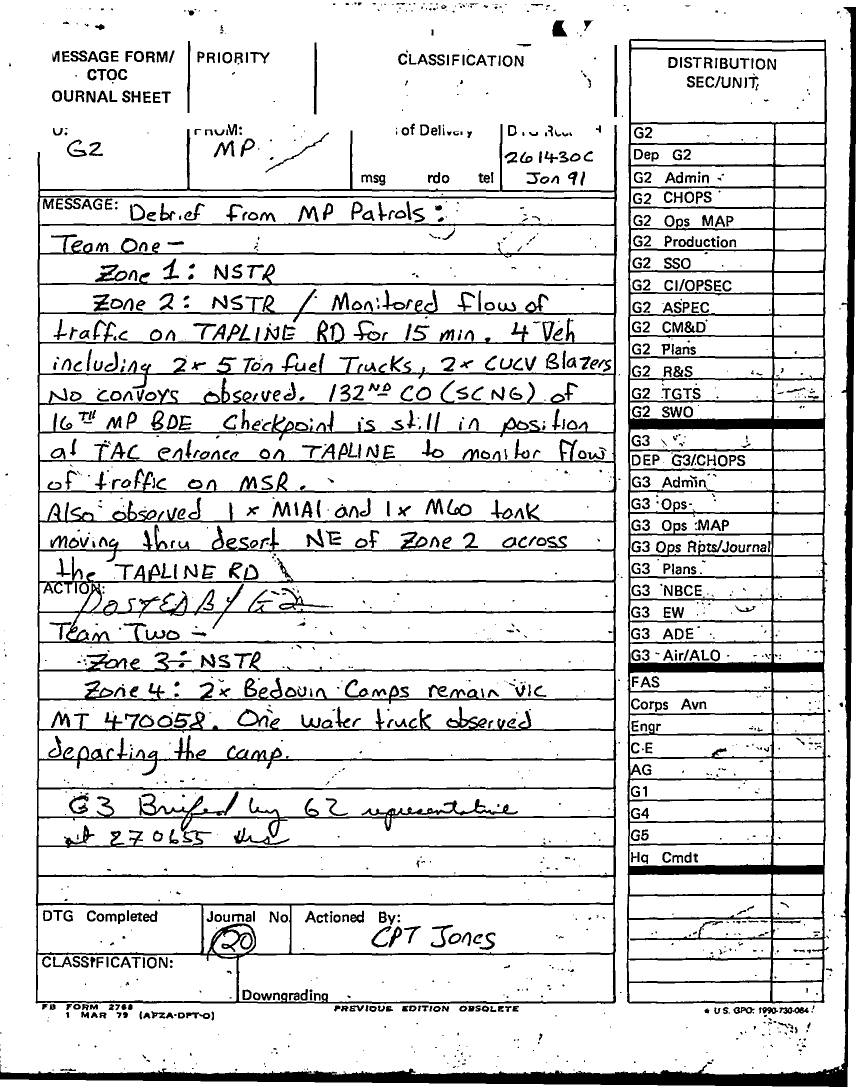 MESSAGE FORM/
CTOC
JOURNAL SHEET
PRIORITY
CLASSIFICATION
DISTRIBUTION
SEC/UNIT
G2
FROM:
MP
of Delivery
msg rdo tel
261430C
Jan 91
MESSAGE: Debrief from MP Patrols:
Team One -
Zone 1: NSTR
Zone 2: NSTR / Monitored flow of
traffic on TAPLINE RD for 15 min. 4 Veh
including 2x 5 Ton fuel Trucks, 2x CUCV Blazers
No convoys observed. 132ND CO (SCNG) of
16TH MP BDE Checkpoint is still in position
at TAC entrance on TAPLINE to monitor flow
of traffic on MSR.
Also observed 1x M1A1 and 1x M60 tank
moving thru desert NE of Zone 2 across
the TAPLINE RD
ACTION: POSTED BY G2
Team Two -
Zone 3: NSTR
Zone 4: 2x Bedouin Camps remain vic
MT 470058. One water truck observed
departing the camp.
G3 Briefed by G2 representative
at 270655 hrs
DTG Completed
Journal No.
20
Actioned By:
CPT Jones
CLASSIFICATION:
Downgrading
FB FORM 2768
1 MAR 79 (AFZA-DPT-O)
PREVIOUS EDITION OBSOLETE
* U.S. GPO: 1990-730-084
G2
Dep G2
G2 Admin
G2 CHOPS
G2 Ops MAP
G2 Production
G2 SSO
G2 CI/OPSEC
G2 ASPEC
G2 CM&D
G2 Plans
G2 R&S
G2 TGTS
G2 SWO
G3
DEP G3/CHOPS
G3 Admin
G3 Ops
G3 Ops MAP
G3 Ops Rpts/Journal
G3 Plans
G3 NBCE
G3 EW
G3 ADE
G3 Air/ALO
FAS
Corps Avn
Engr
C-E
AG
G1
G4
G5
Hq Cmdt